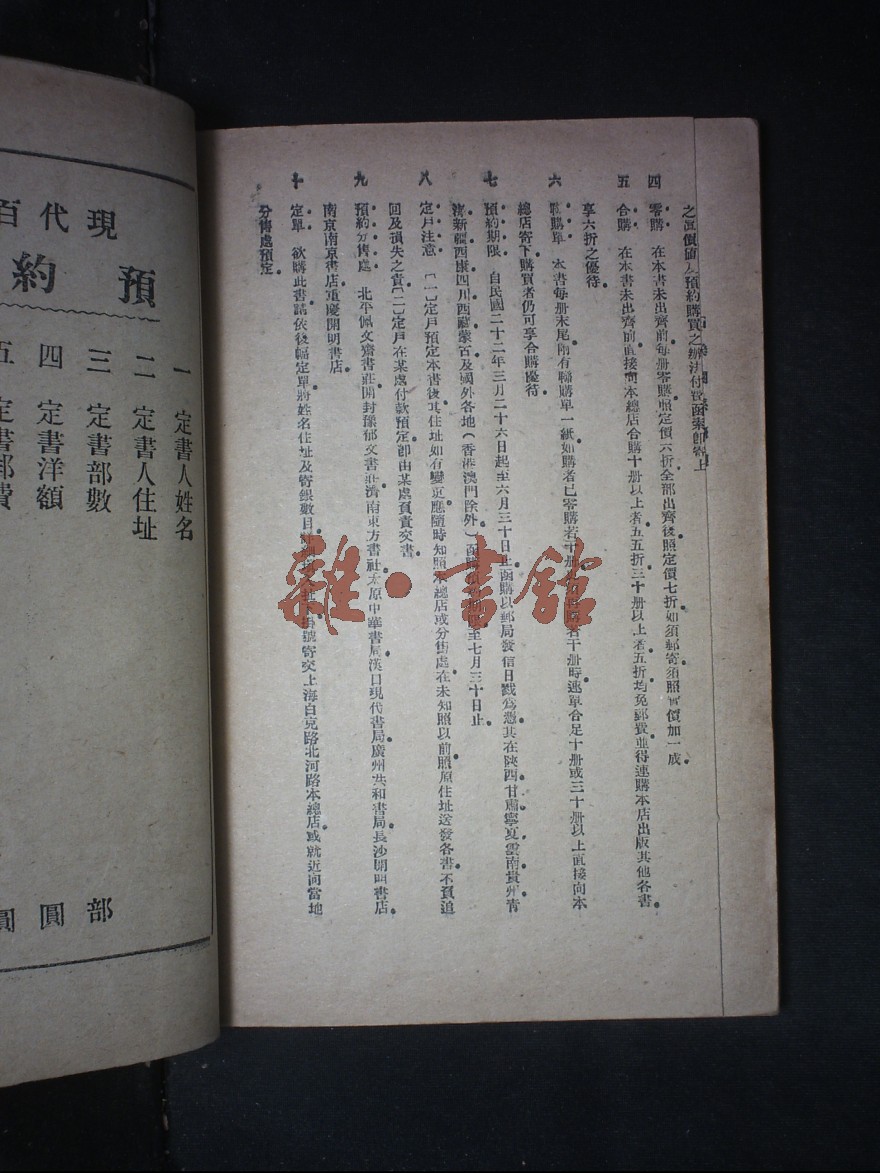 之實價隨人預約購買之辦法付款函索卽寄上
四 零購 在本書未出齊前每册零購照定價六折全部出齊後照定價七折如須郵寄須照實價加一成
五 合購 在本書未出齊前直接向本總店合購十册以上者五五折三十册以上者五折均免郵費並得連購本店出版其他各書
享六折之優待
六 聯購單 本書每册末尾附有聯購單一紙如購者已零購若干册 再購若干册時連單合足十册或三十册以上直接向本
總店寄下購買者仍可享合購優待
七 預約期限 自民國二十二年三月二十六日起至六月三十日止函購以郵局發信日戳爲憑其在陝西甘肅寧夏雲南貴州靑
海新疆西康四川西藏蒙古及國外各地(香港澳門除外)函購預約期限至七月三十日止
八 定戶注意 〔一〕定戶預定本書後其住址如有變更應隨時知照本總店或分售處在未知照以前照原住址送發各書不負追
回及損失之責〔二〕定戶在某處付款預定卽由某處負責交書
九 預約分售處 北平佩文齋書莊開封豫郁文書莊濟南東方書社太原中華書局漢口現代書局廣州共和書局長沙開明書店
南京南京書店重慶開明書店
十 定單 欲購此書請依後幅定單將姓名住址及寄銀數目 掛號寄交上海白克路北河路本總店或就近向當地
分售處預定
雜·書館
現代百
預約
一 定書人姓名
二 定書人住址
三 定書部數 部
四 定書洋額 圓
五 定書郵費 圓